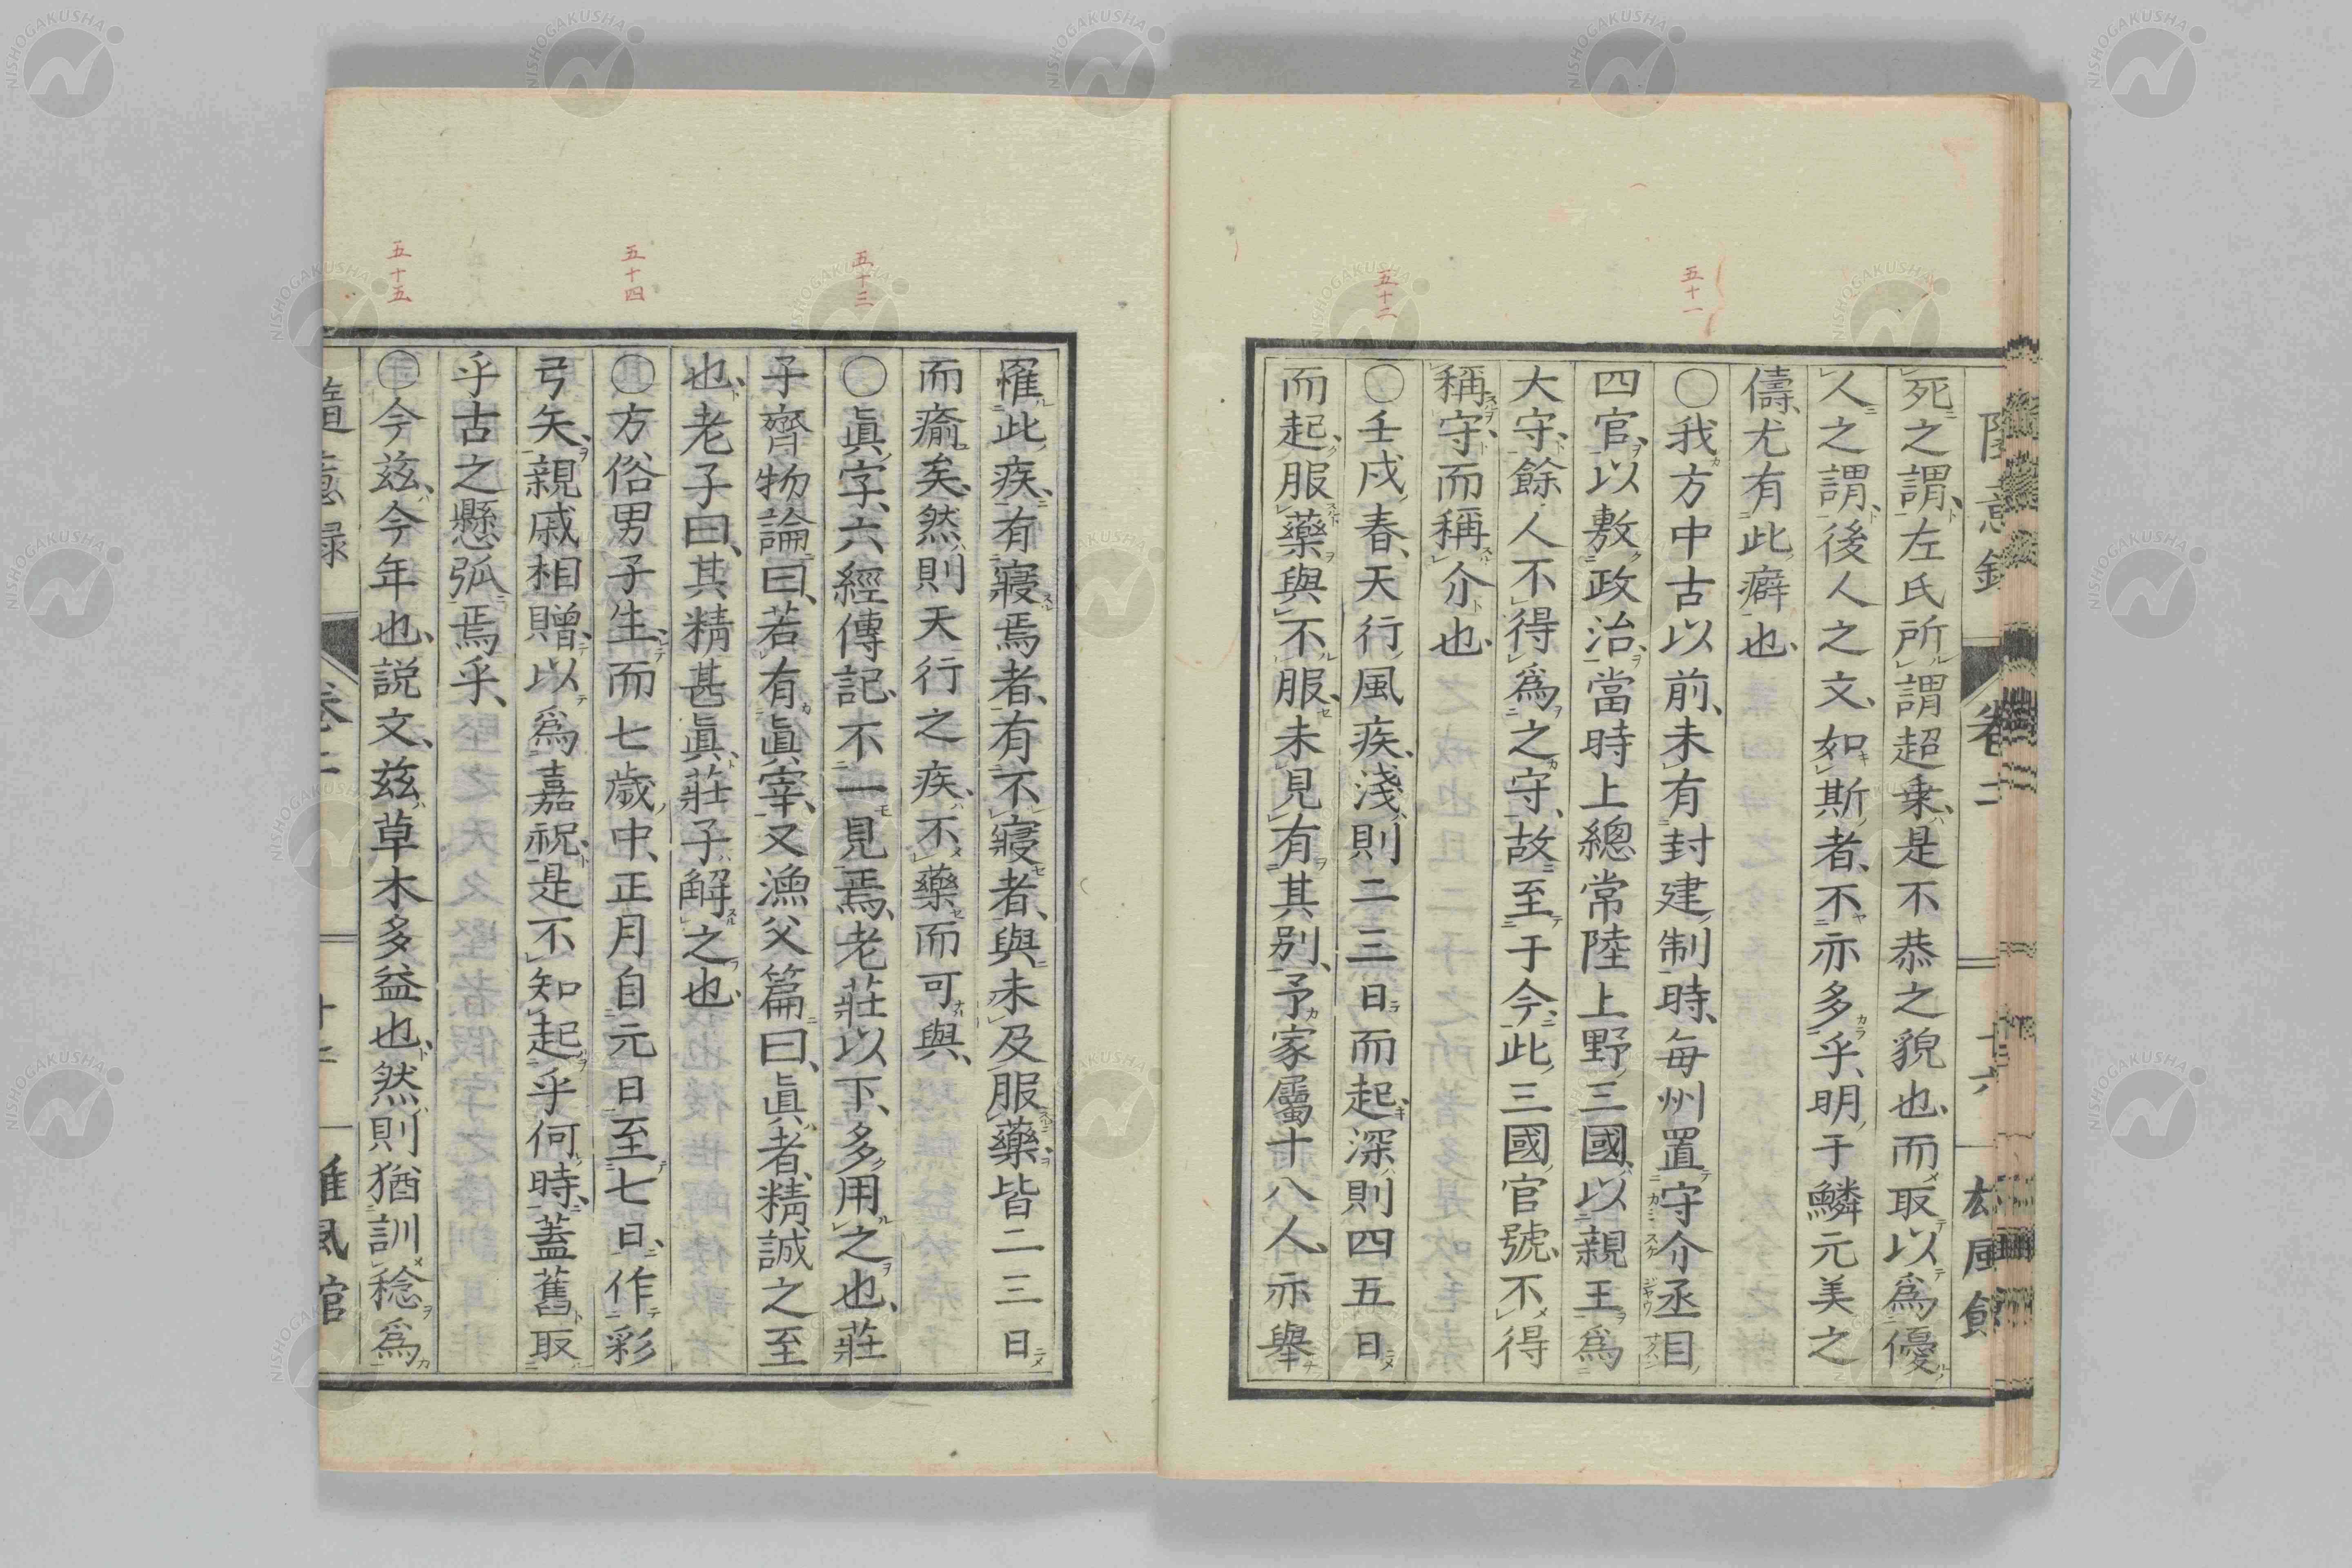 五十一
五十二
死之謂、左氏所謂超乗、是不恭之貌也、而取以爲優
人之謂、後人之文、如斯者、不亦多乎、明于鱗元美之
儔、尤有此癖也、
〇我方中古以前、未有封建制時、毎州置守介丞目
四官、以敷政治、當時上總常陸上野三國、以親王爲
大守、餘人不得爲之守、故至于今、此三國官號、不得
稱守、而稱介也、
〇壬戌春、天行風疾、淺則二三日而起、深則四五日
而起、服藥與不服、未見有其別、予家屬十八人、亦擧
五十三
五十四
五十五
罹此疾、有寢焉者、有不寢者、與未及服藥、皆二三日
而瘉矣、然則天行之疾、不藥而可與、
〇眞字、六經傳記、不一見焉、老莊以下、多用之也、莊
子齊物論曰、若有眞宰、又漁父篇曰、眞者、精誠之至
也、老子曰、其精甚眞、莊子解之也、
〇方俗男子生、而七歳中、正月自元日至七日、作彩
弓矢、親戚相贈、以爲嘉祝、是不知起乎何時、蓋舊取
乎古之懸弧焉乎、
〇今玆、今年也、説文、玆草木多益也、然則猶訓稔爲
卷二
十六
NISHOGAKUSHA